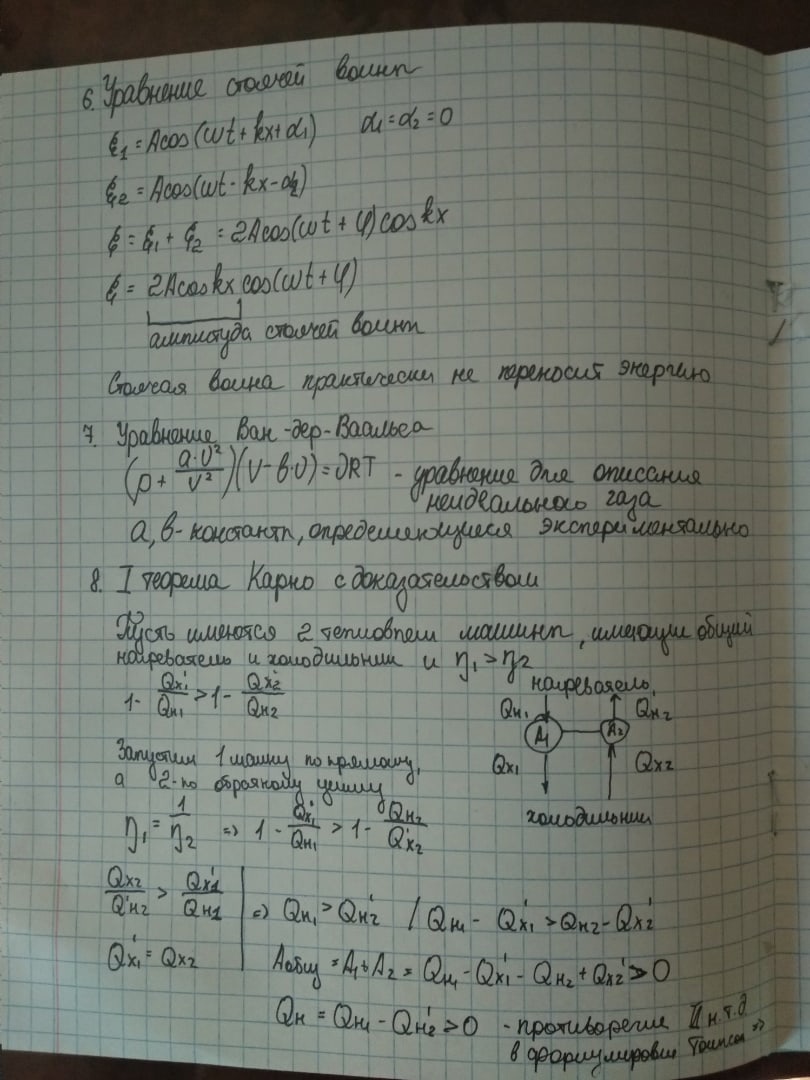 6. Уравнение стоячей волны
ξ₁ = Acos(ωt + kx + α₁)    α₁ = α₂ = 0
ξ₂ = Acos(ωt - kx - α₂)
ξ = ξ₁ + ξ₂ = 2Acos(ωt + φ)coskx
ξ = 2Acoskx cos(ωt + φ)
амплитуда стоячей волны
Стоячая волна практически не переносит энергию
7. Уравнение Ван-дер-Ваальса
(p + a·ν²/V²)(V - в·ν) = νRT - уравнение для описания
неидеального газа
a, в - константы, определяющиеся экспериментально
8. I теорема Карно с доказательством
Пусть имеются 2 тепловые машины, имеющие общий
нагреватель и холодильник и η₁ > η₂
1 - Qx₁'/Qн₁ > 1 - Qx₂'/Qн₂
нагреватель
Qн₁ Q'н₂
A₁ A₂
Qx₁ Qx₂
холодильник
Запустим 1 машину по прямому,
а 2 - по обратному циклу
η₁ = 1/η₂ => 1 - Qx₁'/Qн₁ > 1 - Qн₂/Q'x₂
Qx₂/Q'н₂ > Qx'₁/Qн₁ => Qн₁ > Qн₂' / Qн₁ - Qx₁' > Qн₂ - Qx₂'
Qx₁' = Qx₂ Aобщ = A₁ + A₂ = Qн₁ - Qx₁' - Qн₂ + Qx₂' > 0
Qн = Qн₁ - Qн₂' > 0 - противоречие II н.т.д.
в формулировке